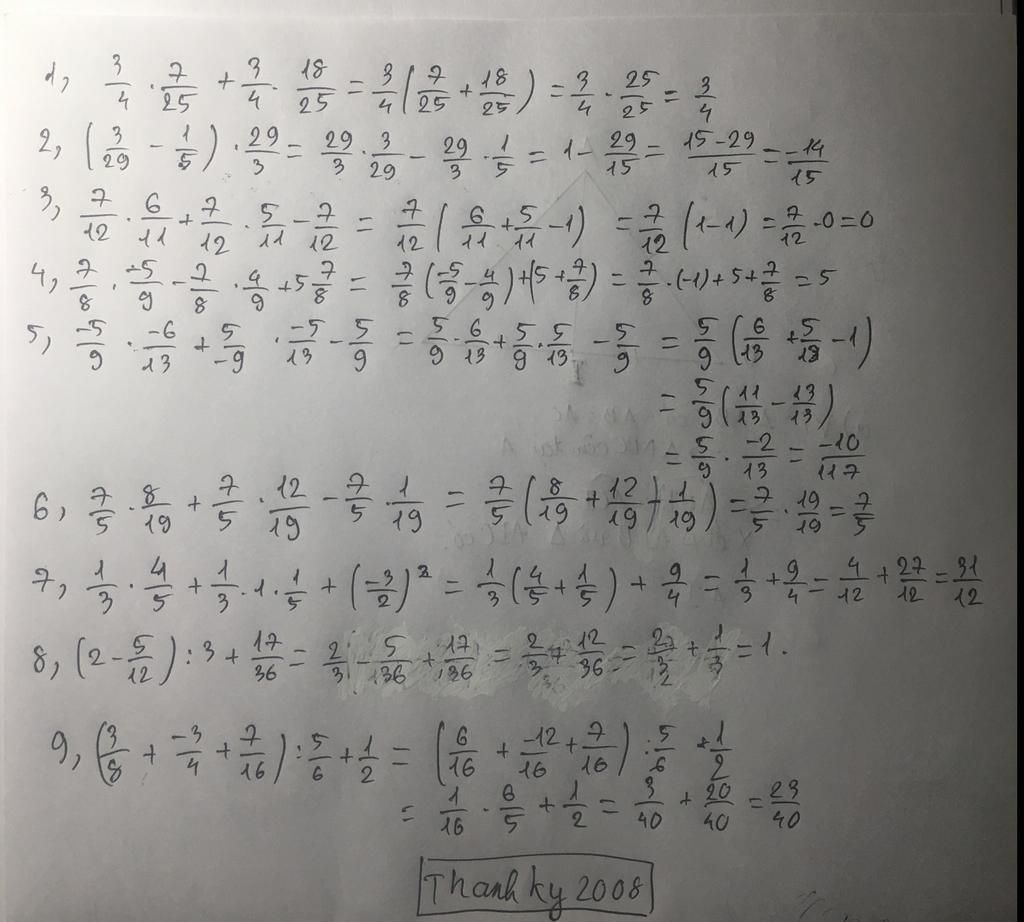 1, 3/4 · 7/25 + 3/4 · 18/25 = 3/4 (7/25 + 18/25) = 3/4 · 25/25 = 3/4
2, (3/29 - 1/5) · 29/3 = 29/3 · 3/29 - 29/3 · 1/5 = 1 - 29/15 = 15-29/15 = -14/15
3, 7/12 · 6/11 + 7/12 · 5/11 - 7/12 = 7/12 (6/11 + 5/11 - 1) = 7/12 (1-1) = 7/12 · 0 = 0
4, 7/8 · -5/9 - 7/8 · 4/9 + 5 7/8 = 7/8 (-5/9 - 4/9) + (5 + 7/8) = 7/8 · (-1) + 5 + 7/8 = 5
5, -5/9 · -6/13 + 5/-9 · -5/13 - 5/9 = 5/9 · 6/13 + 5/9 · 5/13 - 5/9 = 5/9 (6/13 + 5/13 - 1)
= 5/9 (11/13 - 13/13)
= 5/9 · -2/13 = -10/117
6, 7/5 · 8/19 + 7/5 · 12/19 - 7/5 · 1/19 = 7/5 (8/19 + 12/19 - 1/19) = 7/5 · 19/19 = 7/5
7, 1/3 · 4/5 + 1/3 · 1 · 1/5 + (-3/2)² = 1/3 (4/5 + 1/5) + 9/4 = 1/3 + 9/4 = 4/12 + 27/12 = 31/12
8, (2 - 5/12) : 3 + 17/36 = 2/3 - 5/36 + 17/36 = 2/3 + 12/36 = 2/3 + 1/3 = 1.
9, (3/8 + -3/4 + 7/16) : 5/6 + 1/2 = (6/16 + -12/16 + 7/16) : 5/6 + 1/2
= 1/16 · 6/5 + 1/2 = 3/40 + 20/40 = 23/40
Thanh ky 2008